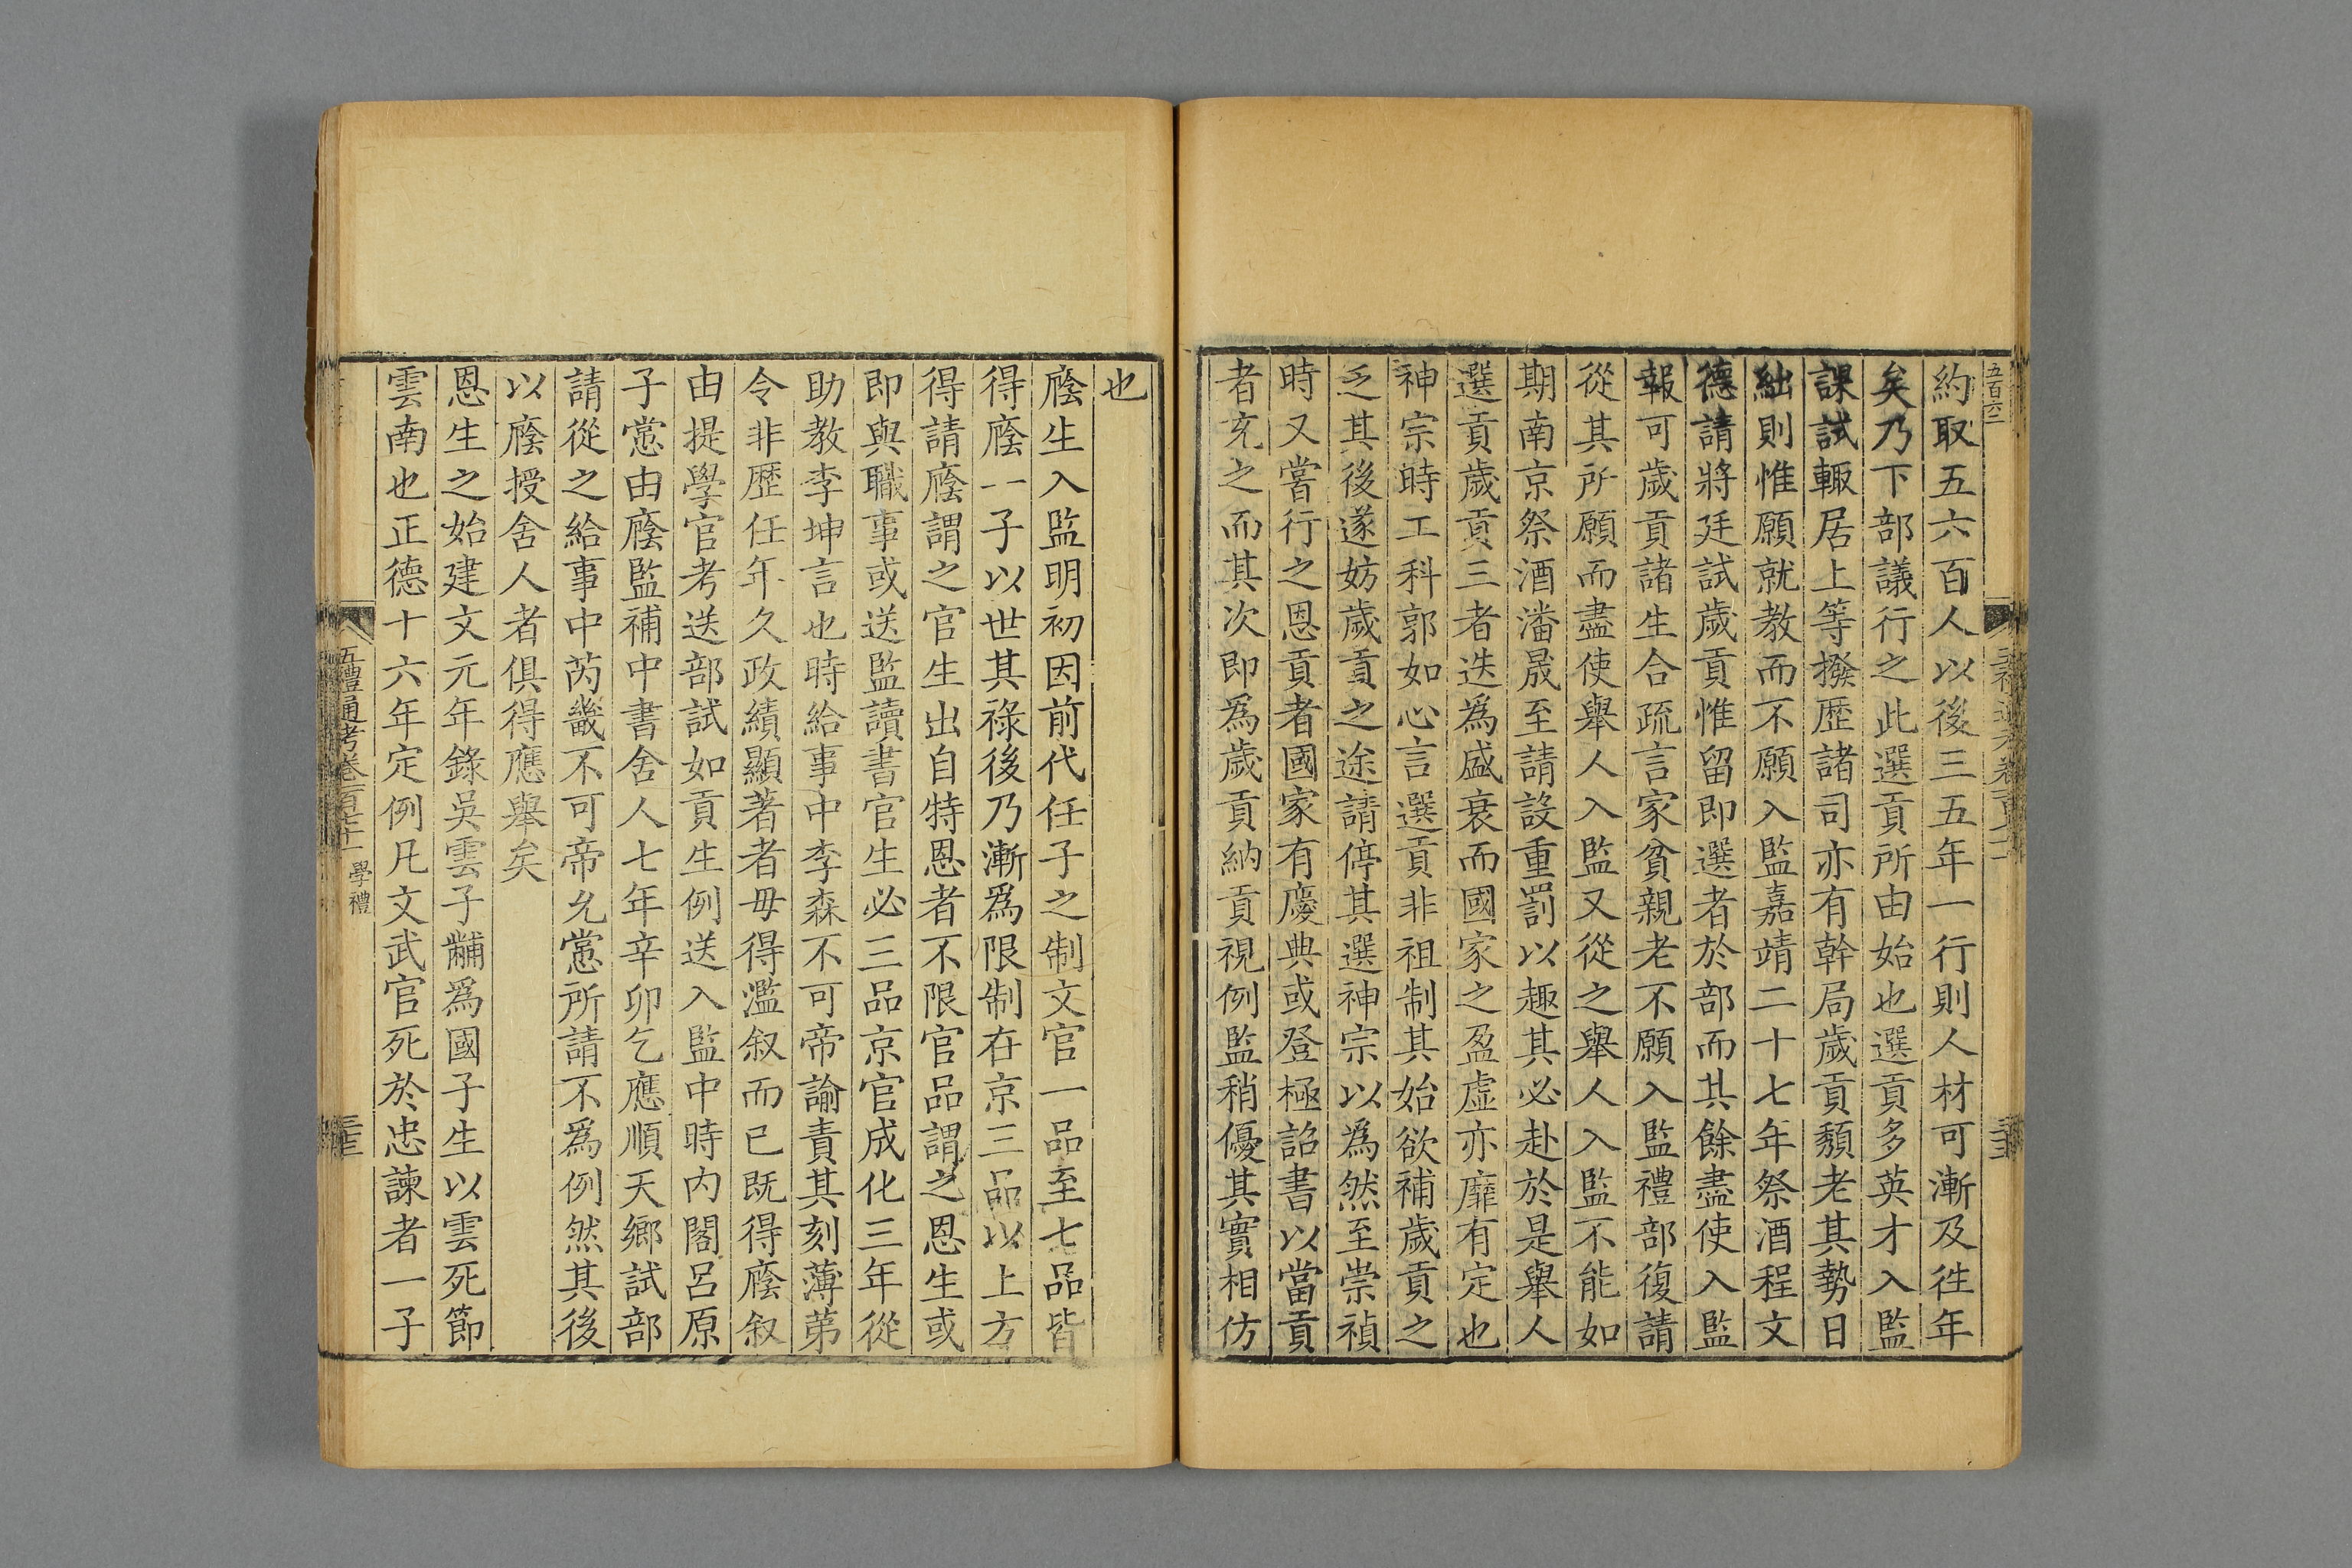 五百六二
約取五六百人以後三五年一行則人材可漸及往年
矣乃下部議行之此選貢所由始也選貢多英才入監
課試輙居上等撥歷諸司亦有幹局歲貢頽老其勢日
絀則惟願就教而不願入監嘉靖二十七年祭酒程文
德請將廷試歲貢惟留即選者於部而其餘盡使入監
報可歲貢諸生合疏言家貧親老不願入監禮部復請
從其所願而盡使舉人入監又從之舉人入監不能如
期南京祭酒潘晟至請設重罰以趣其必赴於是舉人
選貢歲貢三者迭爲盛衰而國家之盈虛亦靡有定也
神宗時工科郭如心言選貢非祖制其始欲補歲貢之
乏其後遂妨歲貢之途請停其選神宗以為然至崇禎
時又嘗行之恩貢者國家有慶典或登極詔書以當貢
者充之而其次即爲歲貢納貢視例監稍優其實相仿
也
廕生入監明初因前代任子之制文官一品至七品皆
得廕一子以世其祿後乃漸爲限制在京三品以上方
得請廕謂之官生出自特恩者不限官品謂之恩生或
即與職事或送監讀書官生必三品京官成化三年從
助教李坤言也時給事中李森不可帝諭責其刻薄第
令非歷任年久政績顯著者毋得濫叙而已既得廕叙
由提學官考送部試如貢生例送入監中時內閣呂原
子㦂由廕監補中書舍人七年辛卯乞應順天鄉試部
請從之給事中芮畿不可帝允㦂所請不爲例然其後
以廕授舍人者俱得應舉矣
恩生之始建文元年錄吳雲子黼爲國子生以雲死節
雲南也正德十六年定例凡文武官死於忠諫者一子
五禮通考卷一百七十一 學禮